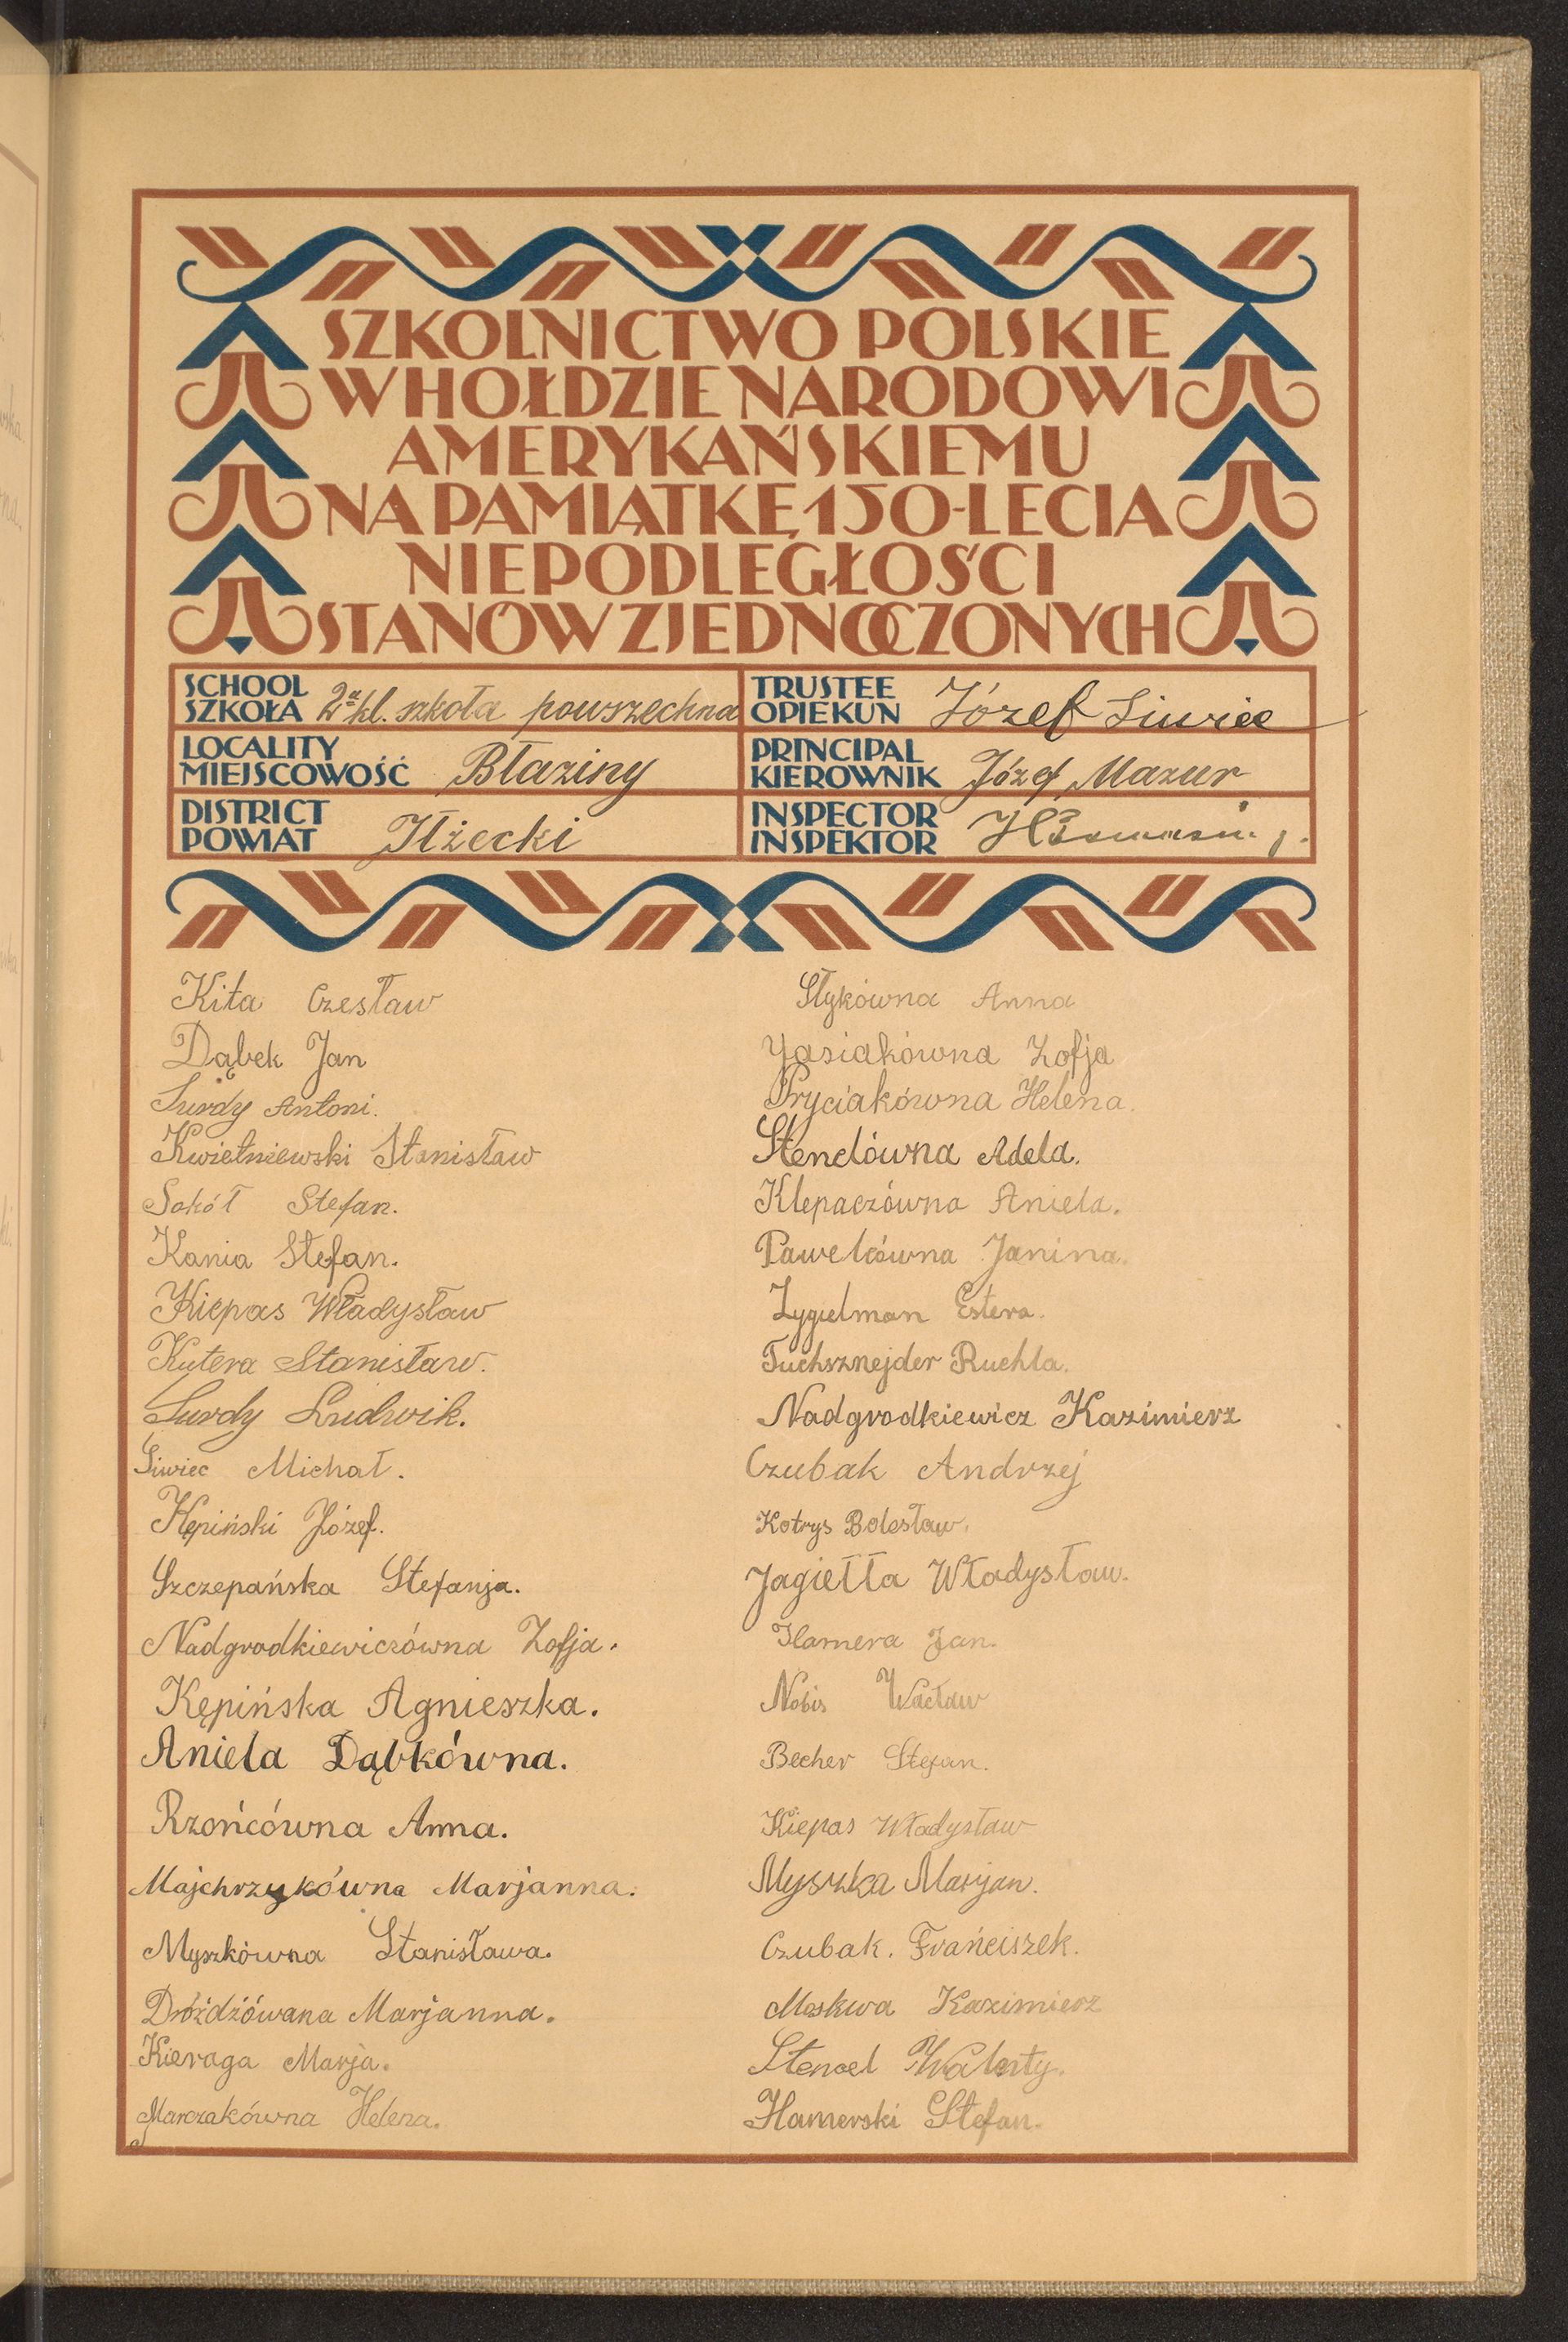 SZKOLNICTWO POLSKIE
W HOŁDZIE NARODOWI
AMERYKAŃSKIEMU
NA PAMIĄTKĘ 150-LECIA
NIEPODLEGŁOŚCI
STANÓW ZJEDNOCZONYCH
SCHOOL
SZKOŁA 2-kl. szkoła powszechna
TRUSTEE
OPIEKUN Józef Siwiec
LOCALITY
MIEJSCOWOŚĆ Błaziny
PRINCIPAL
KIEROWNIK Józef Mazur
DISTRICT
POWIAT Iłżecki
INSPECTOR
INSPEKTOR
Kita Czesław
Dąbek Jan
Surdy Antoni.
Kwietniewski Stanisław
Sokół Stefan.
Kania Stefan.
Kiepas Władysław
Kutera Stanisław.
Surdy Ludwik.
Siwiec Michał.
Kępiński Józef.
Szczepańska Stefanja.
Nadgrodkiewiczówna Zofja.
Kępińska Agnieszka.
Aniela Dąbkówna.
Rzońcówna Anna.
Majchrzykówna Marjanna.
Myszkówna Stanisława.
Dróżdżówana Marjanna.
Kieraga Marja.
Marczakówna Helena.
Słykówna Anna
Jasiakówna Zofja
Pryciakówna Helena.
Stenclówna Adela.
Klepaczówna Aniela.
Pawelcówna Janina.
Zygielman Estera.
Fuchsznejder Ruchla.
Nadgrodkiewicz Kazimierz
Czubak Andrzej
Kotrys Bolesław.
Jagiełła Władysław.
Hamera Jan.
Nobis Wacław
Becher Stefan.
Kiepas Władysław
Myszka Marjan.
Czubak. Frańciszek.
Moskwa Kazimierz
Stencel Walenty.
Hamerski Stefan.